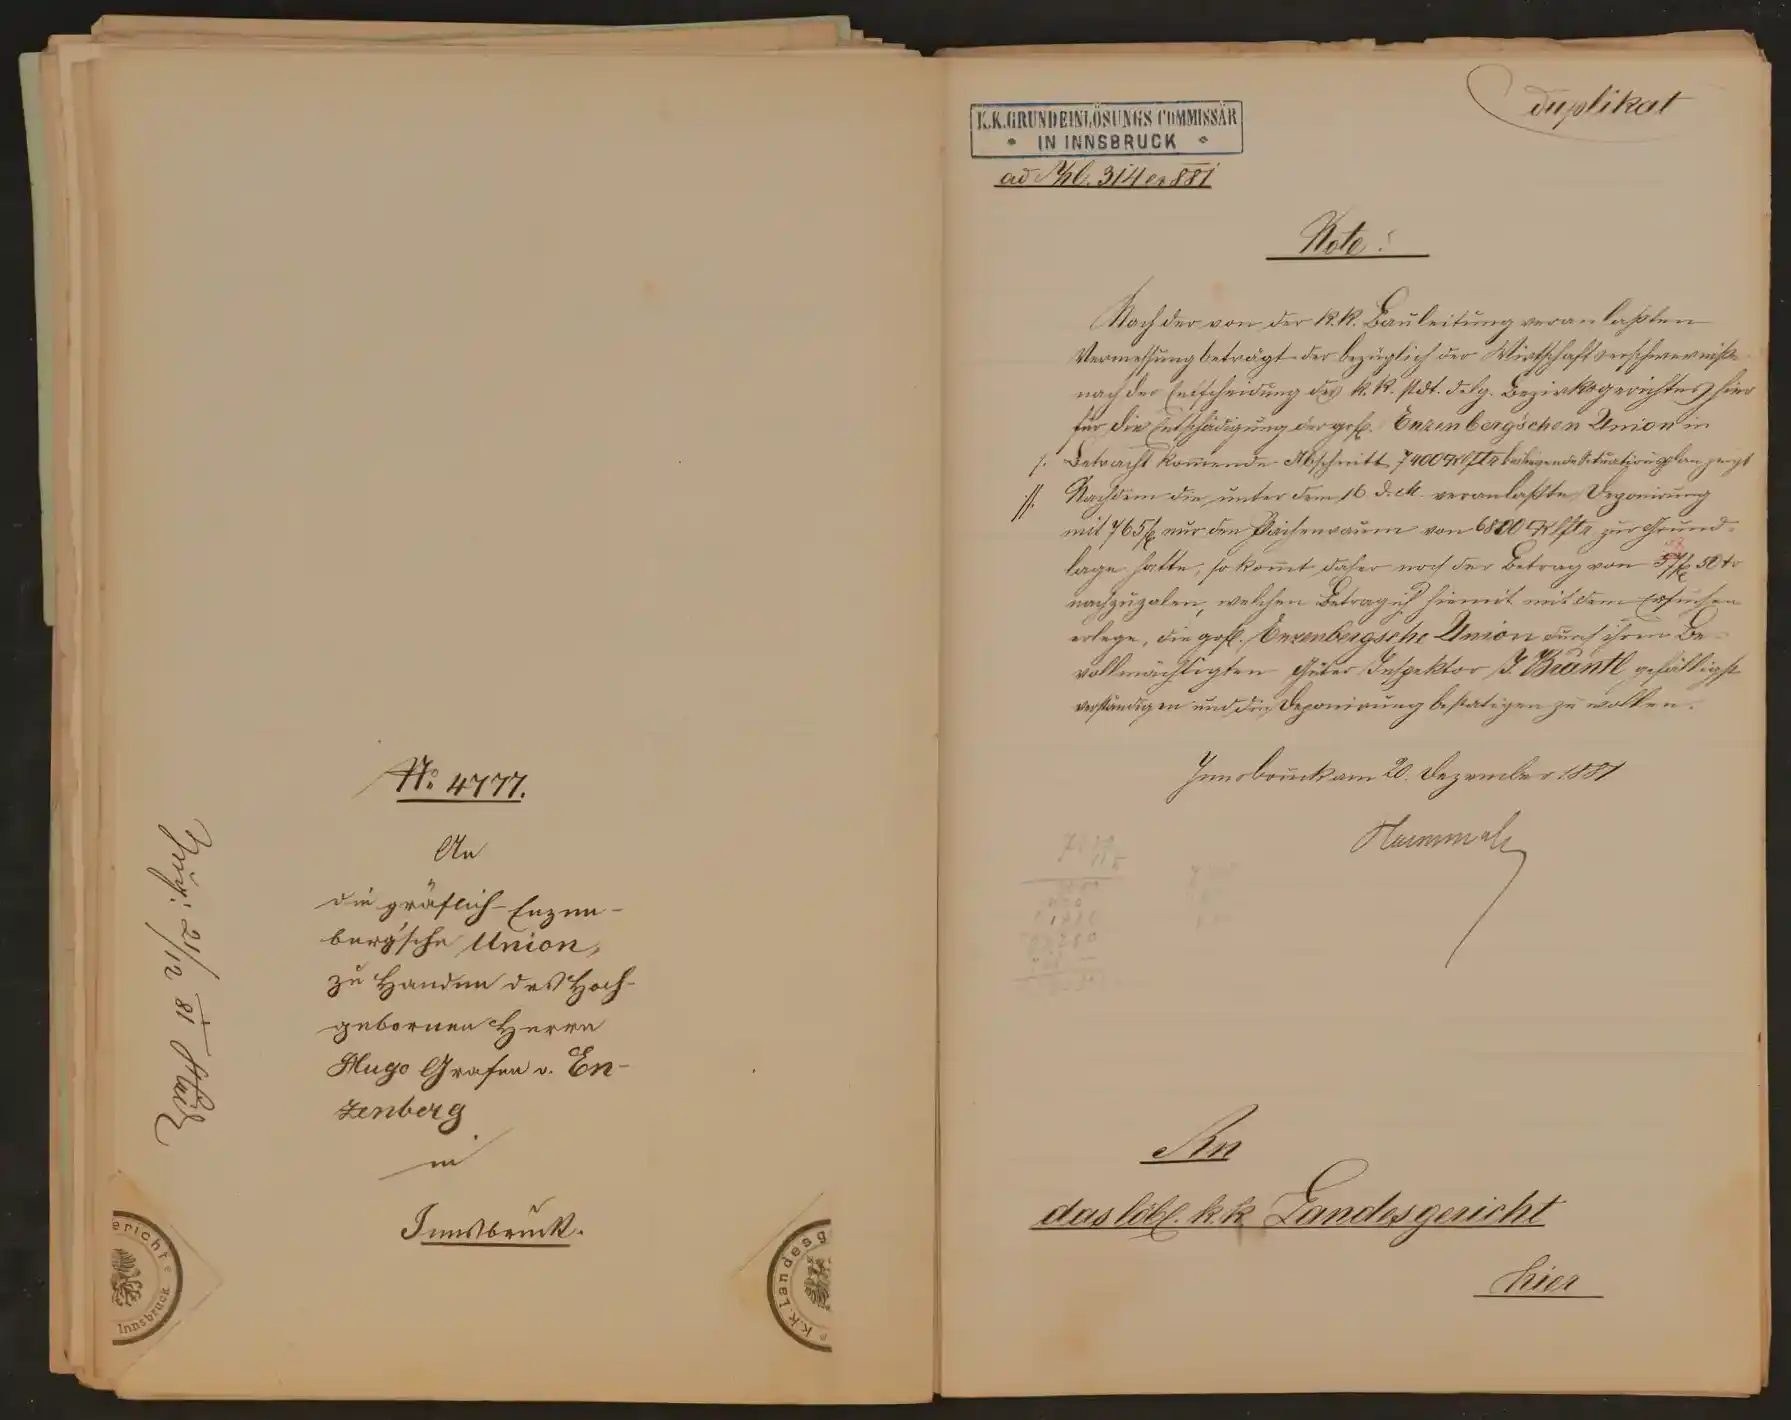 No. 4777.
An
die gräflich-Enzen-
berg'sche Union,
zu Handen des Hoch-
gebornen Herrn
Hugo Grafen v. En-
zenberg
in
Innsbruck.
21/12 81
Gerichte
Innsbruck
K.k. Landesg
Duplikat
K.K. GRUNDEINLÖSUNGS COMMISSÄR
IN INNSBRUCK
ad Zhl. 314 ex 881
Note!
Nach der von der k.k. Bauleitung veranlaßten
Vermessung beträgt der bezüglich der Wirtschaftserschwerniße
nach der Entscheidung des k.k. stdt. delg. Bezirksgerichtes hier
für die Entschädigung der grfl. Enzenbergschen Union in
/. Betracht kommende Abschnitt 7400 □Klftr beiliegende Situationsplan zeigt
//. Nachdem die unter dem 16 d. M. veranlaßte Deponirung
mit 765 f nur den Flächenraum von 6800 □Klftr zur Grund-
lage hatte, so komt daher noch der Betrag von 57 f 50 kr
nachzuzalen, welchen Betrag ich hiemit mit dem Ersuchen
erlege, die grfl. Enzenbergsche Union durch ihren Be-
vollmächtigten Güter Inspektor gefälligst
verständigen und die Deponirung bestätigen zu wollen.
Innsbruck am 20. Dezember 1881
An
das löbl. k.k. Landesgericht
hier